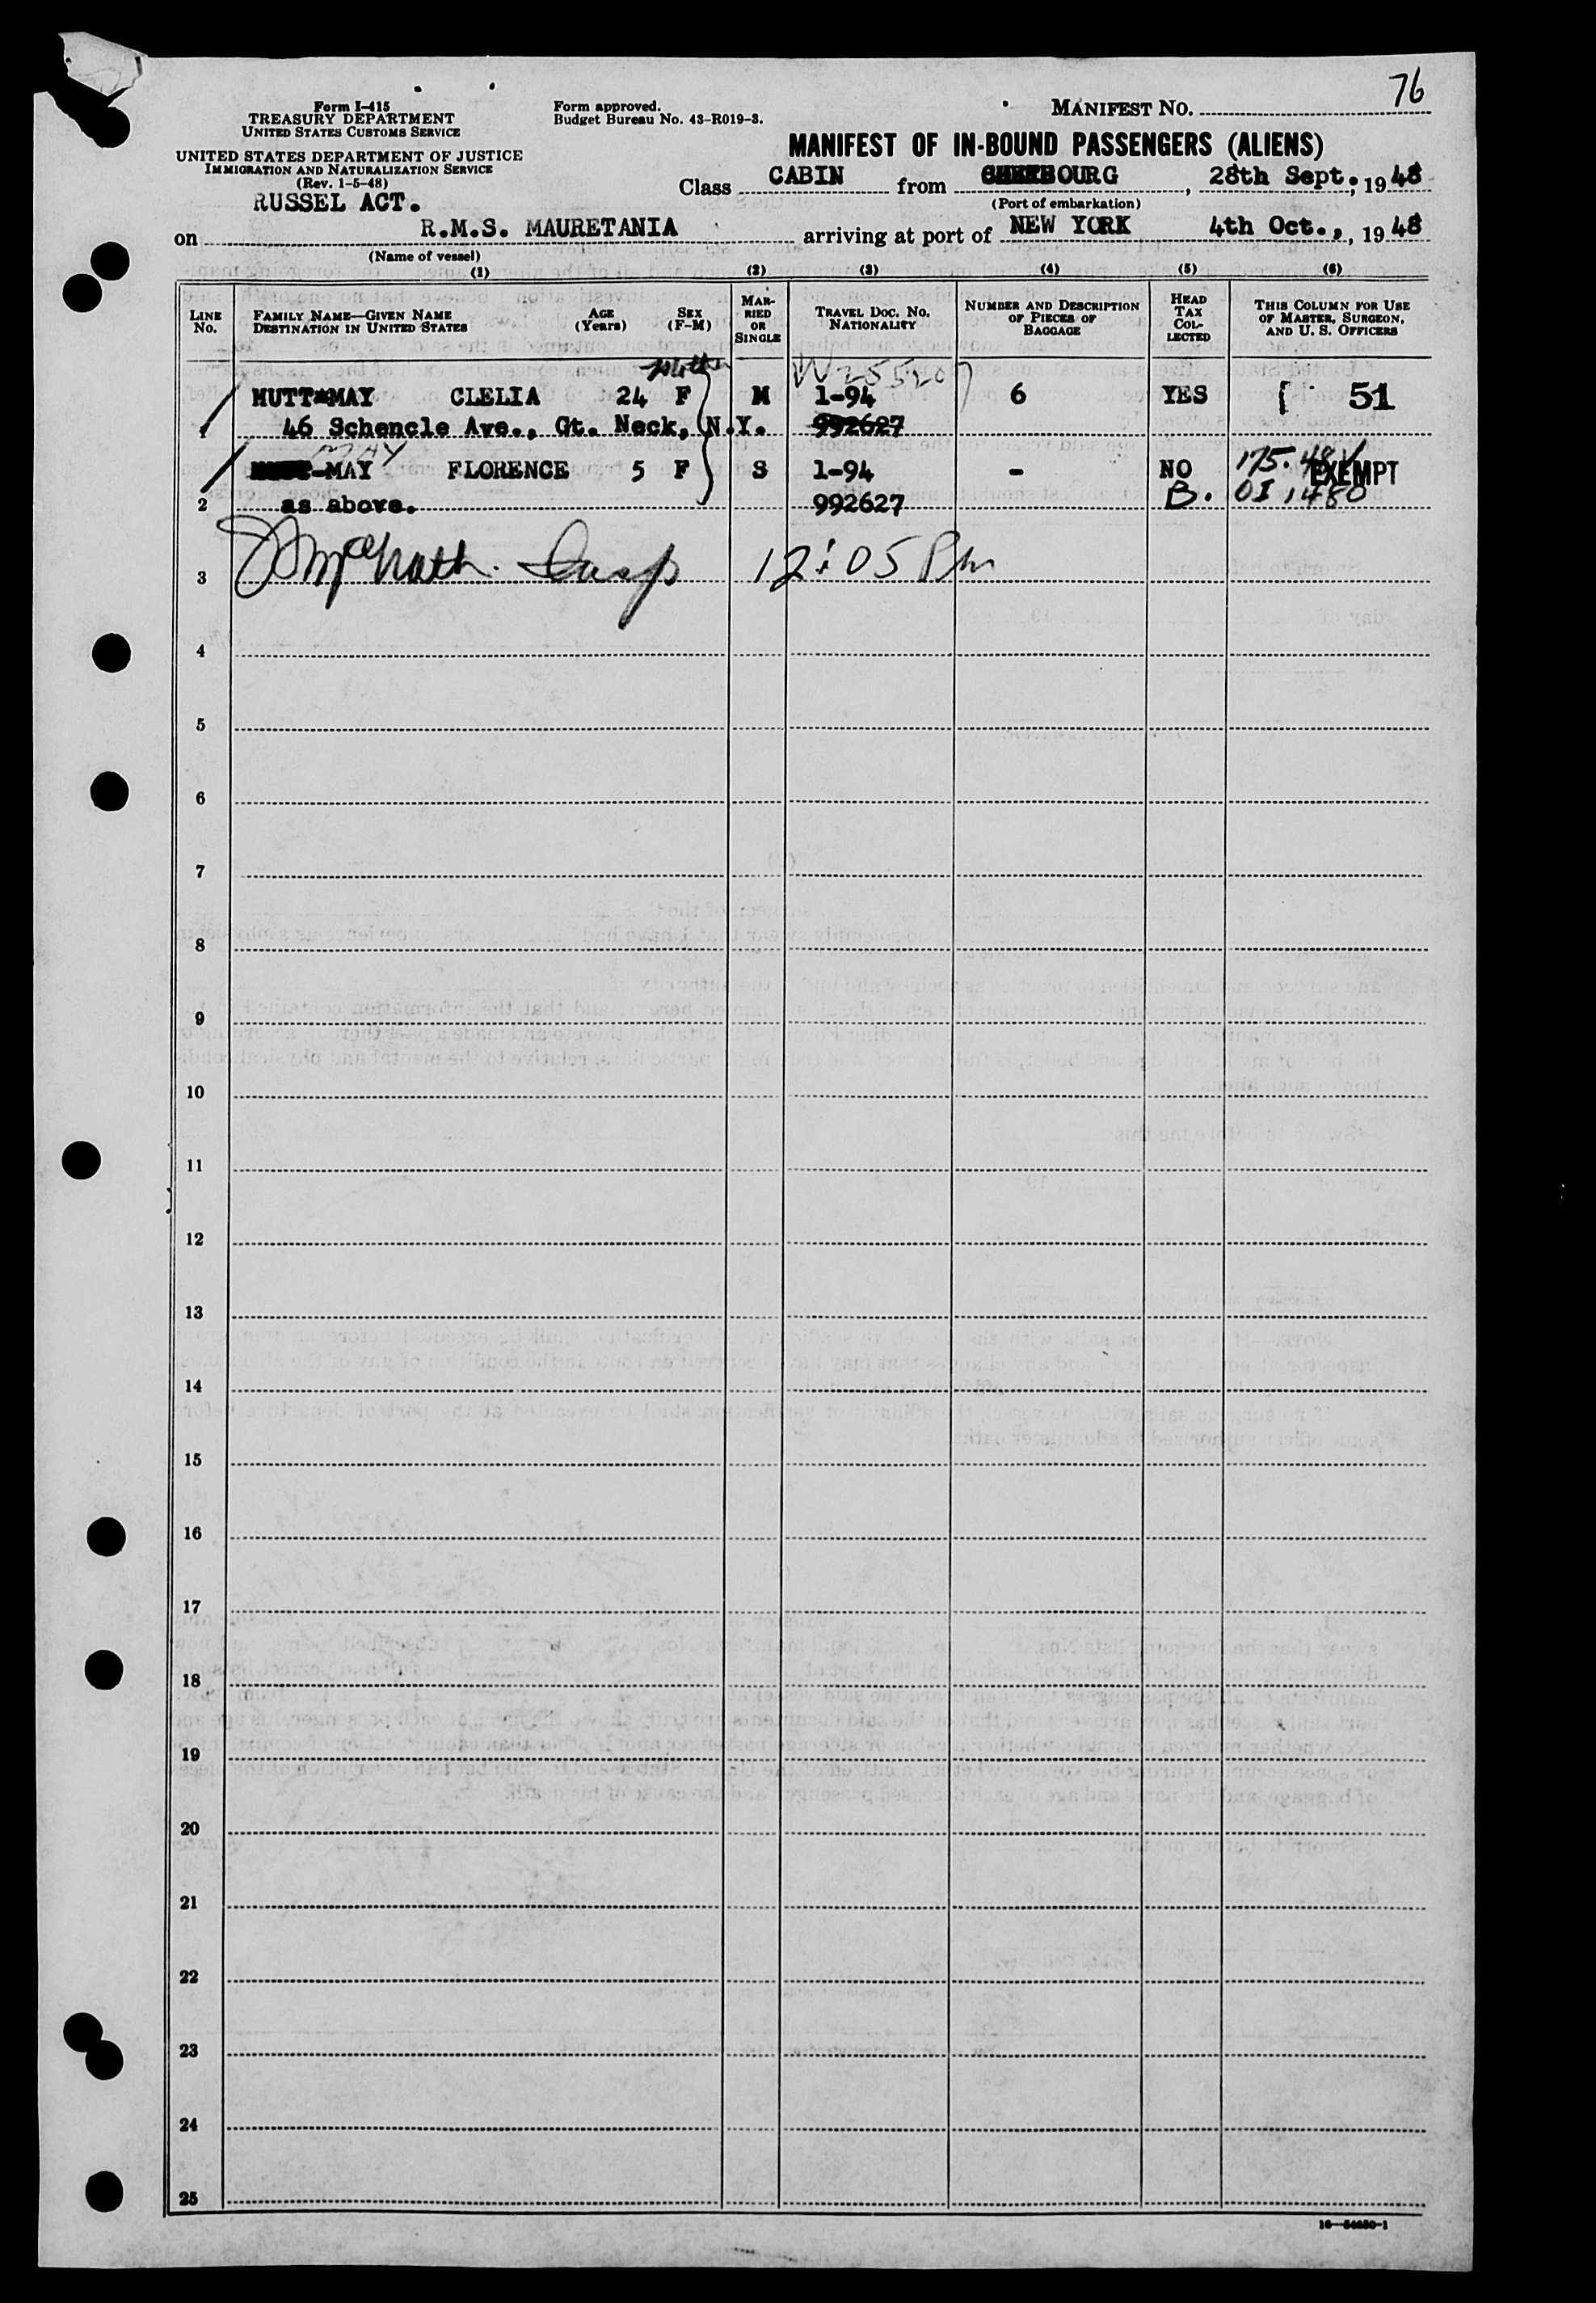 76
Form I-415
TREASURY DEPARTMENT
UNITED STATES CUSTOMS SERVICE
UNITED STATES DEPARTMENT OF JUSTICE
IMMIGRATION AND NATURALIZATION SERVICE
(Rev. 1-5-48)
RUSSEL ACT.
Form approved.
Budget Bureau No. 43-R019-3.
MANIFEST NO.
MANIFEST OF IN-BOUND PASSENGERS (ALIENS)
Class CABIN from CHERBOURG, 28th Sept., 1948
(Port of embarkation)
on R.M.S. MAURETANIA arriving at port of NEW YORK 4th Oct., 1948
(Name of vessel)
(1) (2) (3) (4) (5) (6)
LINE No. FAMILY NAME—GIVEN NAME DESTINATION IN UNITED STATES AGE (Years) SEX (F-M) MARRIED OR SINGLE TRAVEL DOC. NO. NATIONALITY NUMBER AND DESCRIPTION OF PIECES OF BAGGAGE HEAD TAX COLLECTED THIS COLUMN FOR USE OF MASTER, SURGEON, AND U. S. OFFICERS
Mother W25520
HUTT-MAY CLELIA 24 F M 1-94 6 YES 51
1 46 Schencle Ave., Gt. Neck, N.Y. 992627
MAY 175.48V
-MAY FLORENCE 5 F S 1-94 - NO EXEMPT
2 as above. 992627 B. OI, 480
3 McGrath. Insp 12:05 Pm
4
5
6
7
8
9
10
11
12
13
14
15
16
17
18
19
20
21
22
23
24
25
16—54650-1